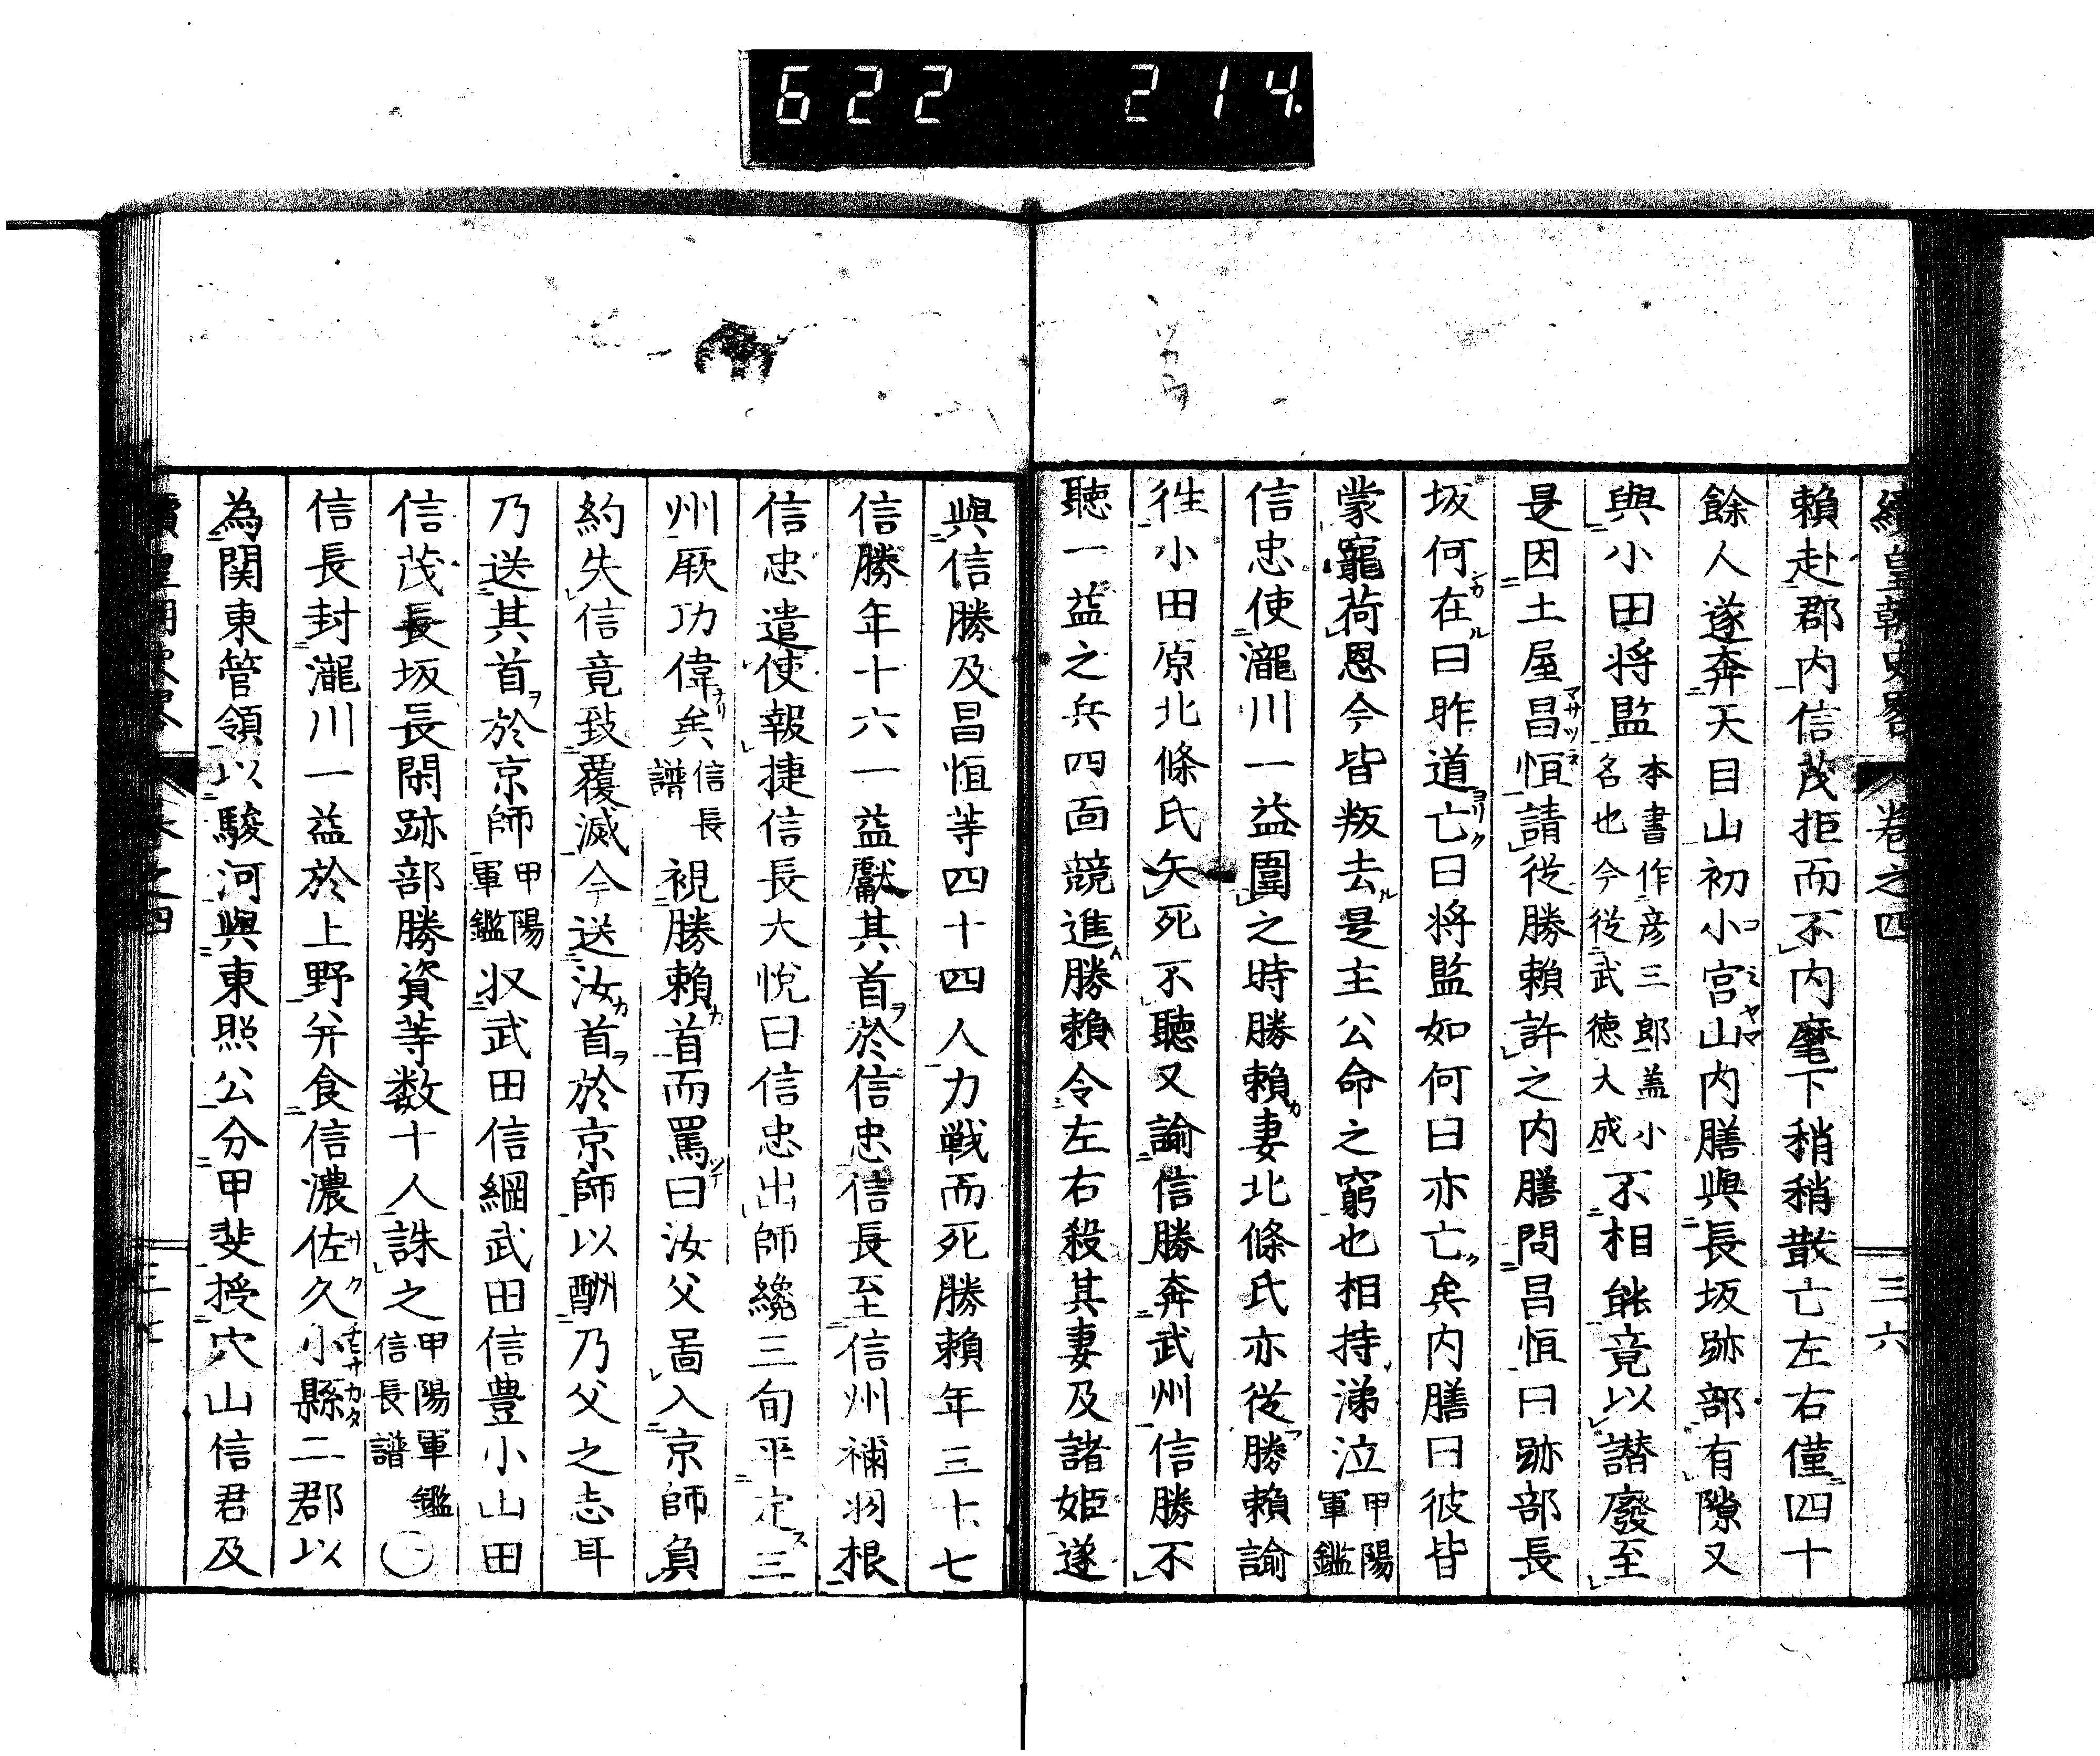 622 214
續皇朝史畧 卷之四 三六
賴赴郡内信茂拒而不内麾下稍稍散亡左右僅四十
餘人遂奔天目山初小宮山内膳與長坂跡部有隙又
與小田将監本書作彦三郎盖小名也今從武徳大成不相能竟以譖廢至
是因土屋昌恒請從勝賴許之内膳問昌恒曰跡部長
坂何在曰昨道亡曰将監如何曰亦亡矣内膳曰彼皆
蒙寵荷恩今皆叛去是主公命之窮也相持涕泣甲陽軍鑑
信忠使瀧川一益圍之時勝賴妻北條氏亦從勝賴諭
徃小田原北條氏矢死不聽又諭信勝奔武州信勝不
聽一益之兵四面競進勝賴令左右殺其妻及諸姫遂
與信勝及昌恒等四十四人力戦而死勝賴年三十七
信勝年十六一益獻其首於信忠信長至信州補羽根
信忠遣使報捷信長大悅曰信忠出師纔三旬平定三
州厥功偉矣信長譜視勝賴首而罵曰汝父啚入京師負
約失信竟致覆滅今送汝首於京師以酬乃父之志耳
乃送其首於京師甲陽軍鑑収武田信綱武田信豊小山田
信茂長坂長閑跡部勝資等数十人誅之甲陽軍鑑信長譜○
信長封瀧川一益於上野并食信濃佐久小縣二郡以
為関東管領以駿河與東照公分甲斐授穴山信君及